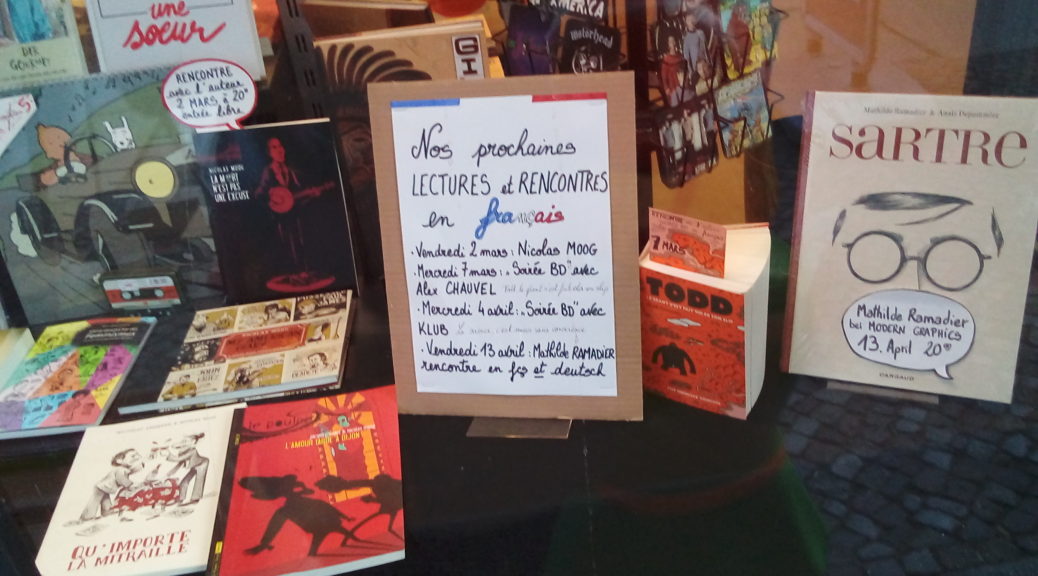 une
soeur
DER
RENCONTRE
avec l'auteur
2 MARS à 20ʰ
entrée libre
NICOLAS MOOG
LA MORT
N'EST PAS
UNE EXCUSE
GI
AMERICA
Motörhead
Nos prochaines
LECTURES et RENCONTRES
en français
· Vendredi 2 mars : Nicolas MOOG
· Mercredi 7 mars : „Soirée BD" avec
Alex CHAUVEL
· Mercredi 4 avril : „Soirée BD" avec
KLUB
· Vendredi 13 avril : Mathilde RAMADIER
rencontre en fçs et deutsch
7 MARS
TODD
Mathilde Ramadier & Anaïs Depommier
SARTRE
Mathilde Ramadier
bei MODERN GRAPHICS
13. April 20ʰ
DARGAUD
QU'IMPORTE
LA MITRAILLE
L'AMOUR (ÀGE) À DIJON